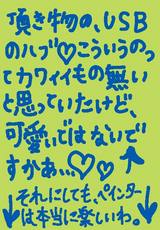 頂き物の、USB
のハブ♡こういうのっ
てカワイイもの無い
と思っていたけど、
可愛いではないで
すかぁ…♡♡↑
↓それにしても、ペインター↓
は本当に楽しいわ。